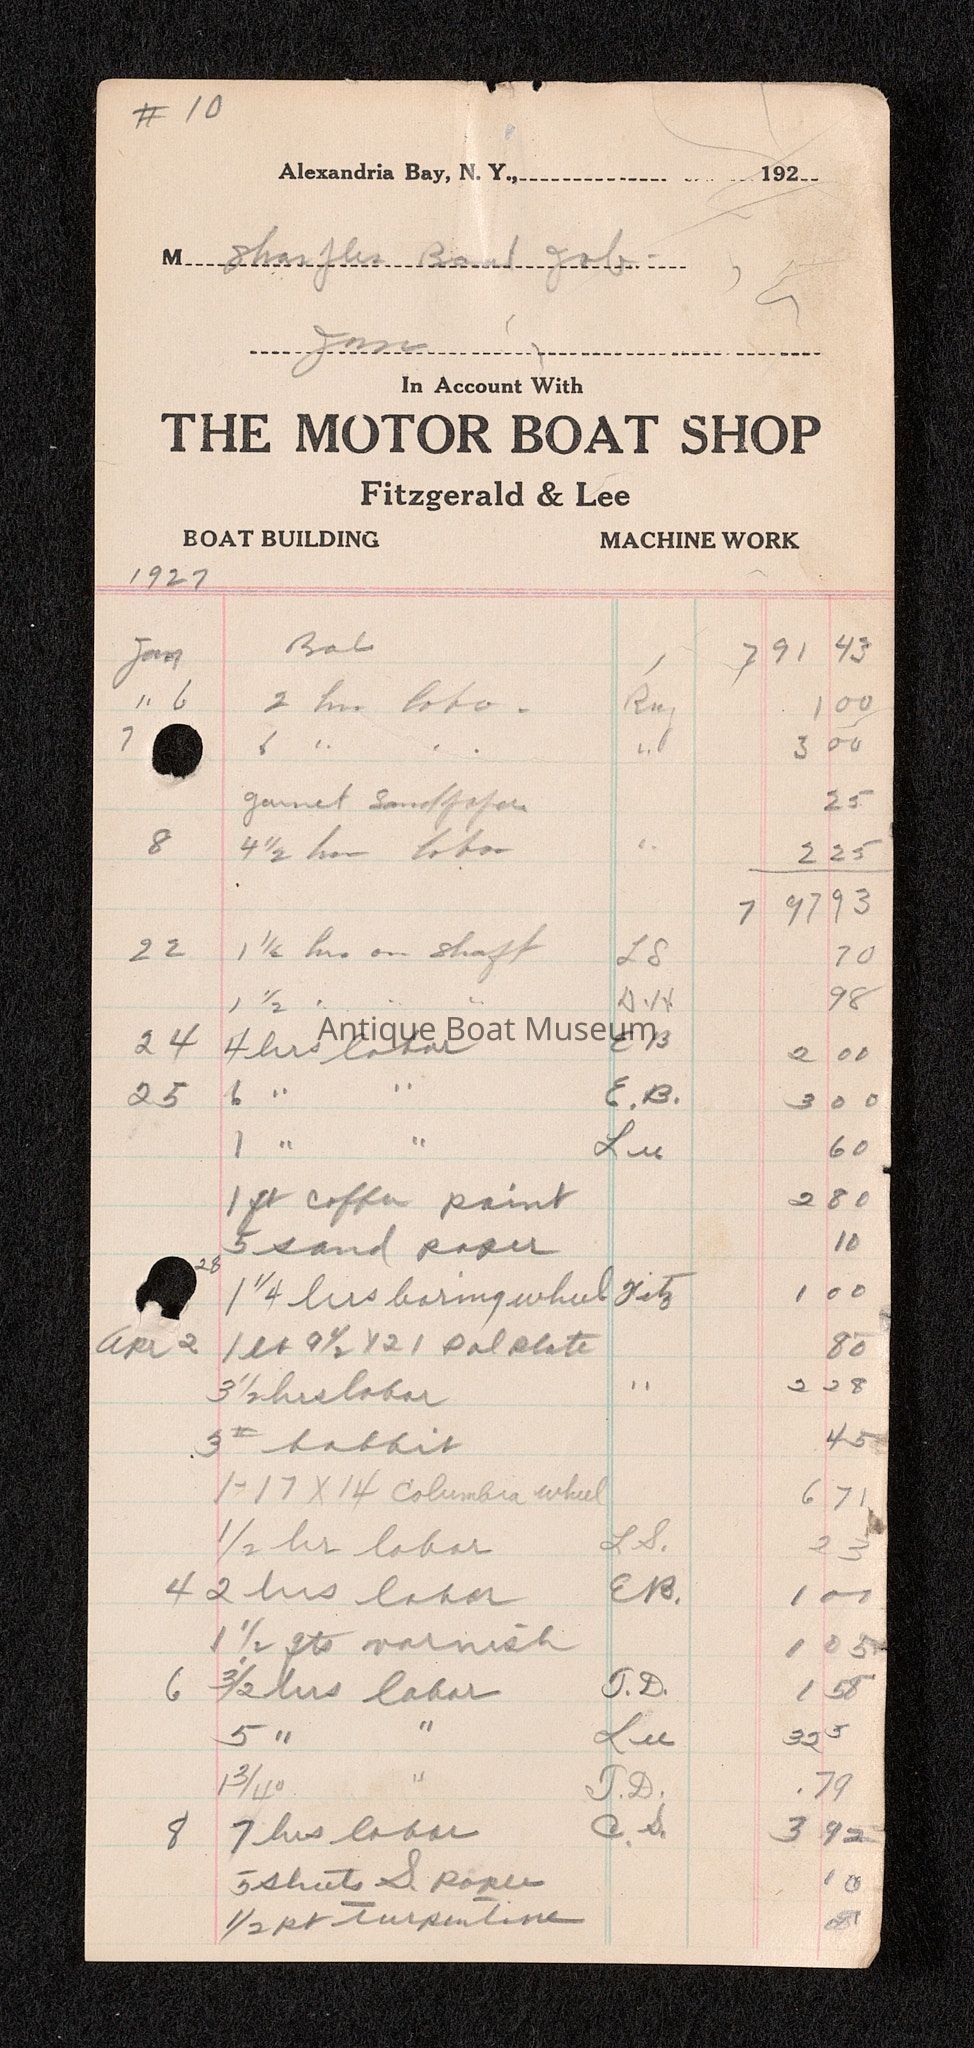 # 10
Alexandria Bay, N. Y., 192
M Boat Job -
Jan
In Account With
THE MOTOR BOAT SHOP
Fitzgerald & Lee
BOAT BUILDING MACHINE WORK
1927
Jan Bal 791 43
" 6 2 hrs labor 1 00
7 6 " " " 3 00
garnet Sandpaper 25
8 4 1/2 hrs labor " 2 25
797 93
22 1 1/2 hrs on shaft LS 70
1 1/2 " " " D.H 98
Antique Boat Museum
24 4 hrs labor EB 2 00
25 6 " " E.B. 3 00
1 " " Lee 60
1 pt copper paint 2 80
5 sand paper 10
28 1 1/4 hrs boring wheel Fitz 1 00
Apr 2 80
3 1/2 hrs labor " 2 28
3 # babbit 45
1 - 17 X 14 Columbia wheel 6 71
1/2 hr labor L.S. 23
4 2 hrs labor EB. 1 00
1 1/2 varnish 1 05
6 3 1/2 hrs labor J.D. 1 58
5 " " Lee 3 25
1 3/4 " " J.D. .79
8 7 hrs labor C.S. 3 92
5 sheets S. paper 10
1/2 pt Turpentine